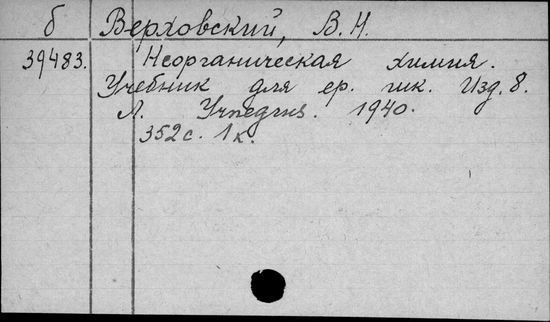 б Верховский, В. Н.
39483. Неорганическая химия.
Учебник для ср. шк. Изд. 8.
Л. Учпедгиз. 1940.
352 с. 1 к.